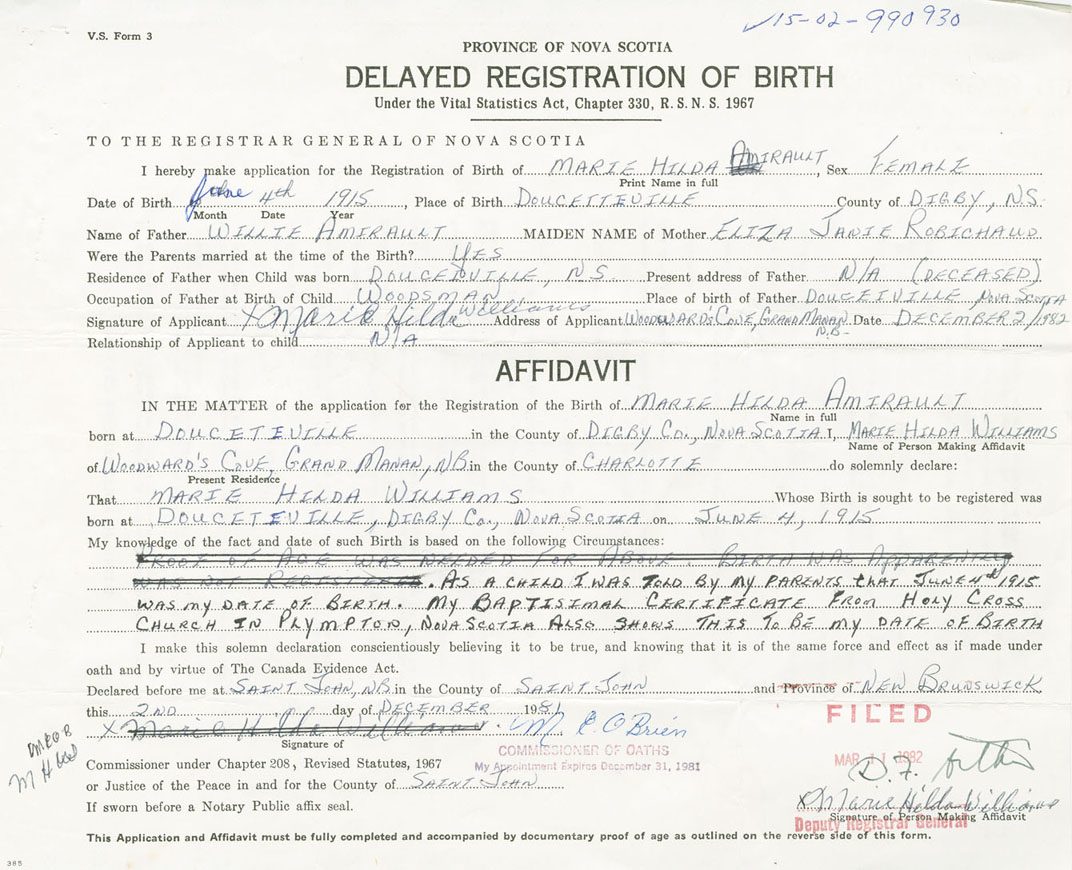 ✓15-02-990930
V.S. Form 3
PROVINCE OF NOVA SCOTIA
DELAYED REGISTRATION OF BIRTH
Under the Vital Statistics Act, Chapter 330, R. S. N. S. 1967
TO THE REGISTRAR GENERAL OF NOVA SCOTIA
I hereby make application for the Registration of Birth of MARIE HILDA AMIRAULT, Sex FEMALE
Print Name in full
Date of Birth June 4th 1915, Place of Birth DOUCETTEVILLE County of DIGBY, N.S.
Month Date Year
Name of Father WILLIE AMIRAULT MAIDEN NAME of Mother ELIZA JANIE ROBICHAUD
Were the Parents married at the time of the Birth? YES
Residence of Father when Child was born DOUCETVILLE, N.S. Present address of Father N/A (DECEASED)
Occupation of Father at Birth of Child WOODSMAN Place of birth of Father DOUCETVILLE, NOVA SCOTIA
Signature of Applicant X Marie Hilda Williams Address of Applicant WOODWARD'S COVE, GRAND MANAN N.B. Date DECEMBER 2/1982
Relationship of Applicant to child N/A
AFFIDAVIT
IN THE MATTER of the application for the Registration of the Birth of MARIE HILDA AMIRAULT
Name in full
born at DOUCETEVILLE in the County of DIGBY CO., NOVA SCOTIA I, MARIE HILDA WILLIAMS
Name of Person Making Affidavit
of WOODWARD'S COVE, GRAND MANAN, NB in the County of CHARLOTTE do solemnly declare:
Present Residence
That MARIE HILDA WILLIAMS Whose Birth is sought to be registered was
born at DOUCETEVILLE, DIGBY CO., NOVA SCOTIA on JUNE 4, 1915
My knowledge of the fact and date of such Birth is based on the following Circumstances:
PROOF OF AGE WAS NEEDED FOR ABOVE. BIRTH WAS APPARENTLY
WAS NOT REGISTERED. AS A CHILD I WAS TOLD BY MY PARENTS that JUNE 4th 1915
WAS MY DATE OF BIRTH. MY BAPTISIMAL CERTIFICATE FROM HOLY CROSS
CHURCH IN PLYMPTON, NOVA SCOTIA ALSO SHOWS THIS TO BE MY DATE OF BIRTH
I make this solemn declaration conscientiously believing it to be true, and knowing that it is of the same force and effect as if made under
oath and by virtue of The Canada Evidence Act.
Declared before me at SAINT JOHN, NB in the County of SAINT JOHN and Province of NEW BRUNSWICK
this 2ND day of DECEMBER 1981
FILED
X Marie Hilda Williams. M. E. O'Brien
Signature of
COMMISSIONER OF OATHS
My Appointment Expires December 31, 1981
MAR 11 1982
Commissioner under Chapter 208, Revised Statutes, 1967
or Justice of the Peace in and for the County of SAINT JOHN
X Marie Hilda Williams
Signature of Person Making Affidavit
Deputy Registrar General
If sworn before a Notary Public affix seal.
This Application and Affidavit must be fully completed and accompanied by documentary proof of age as outlined on the reverse side of this form.
385